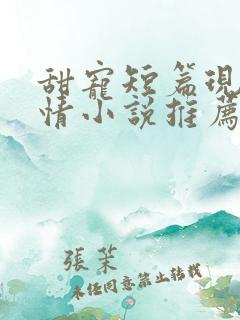 甜寵短篇現
情小說推薦
張茉
未經同意禁止轉載